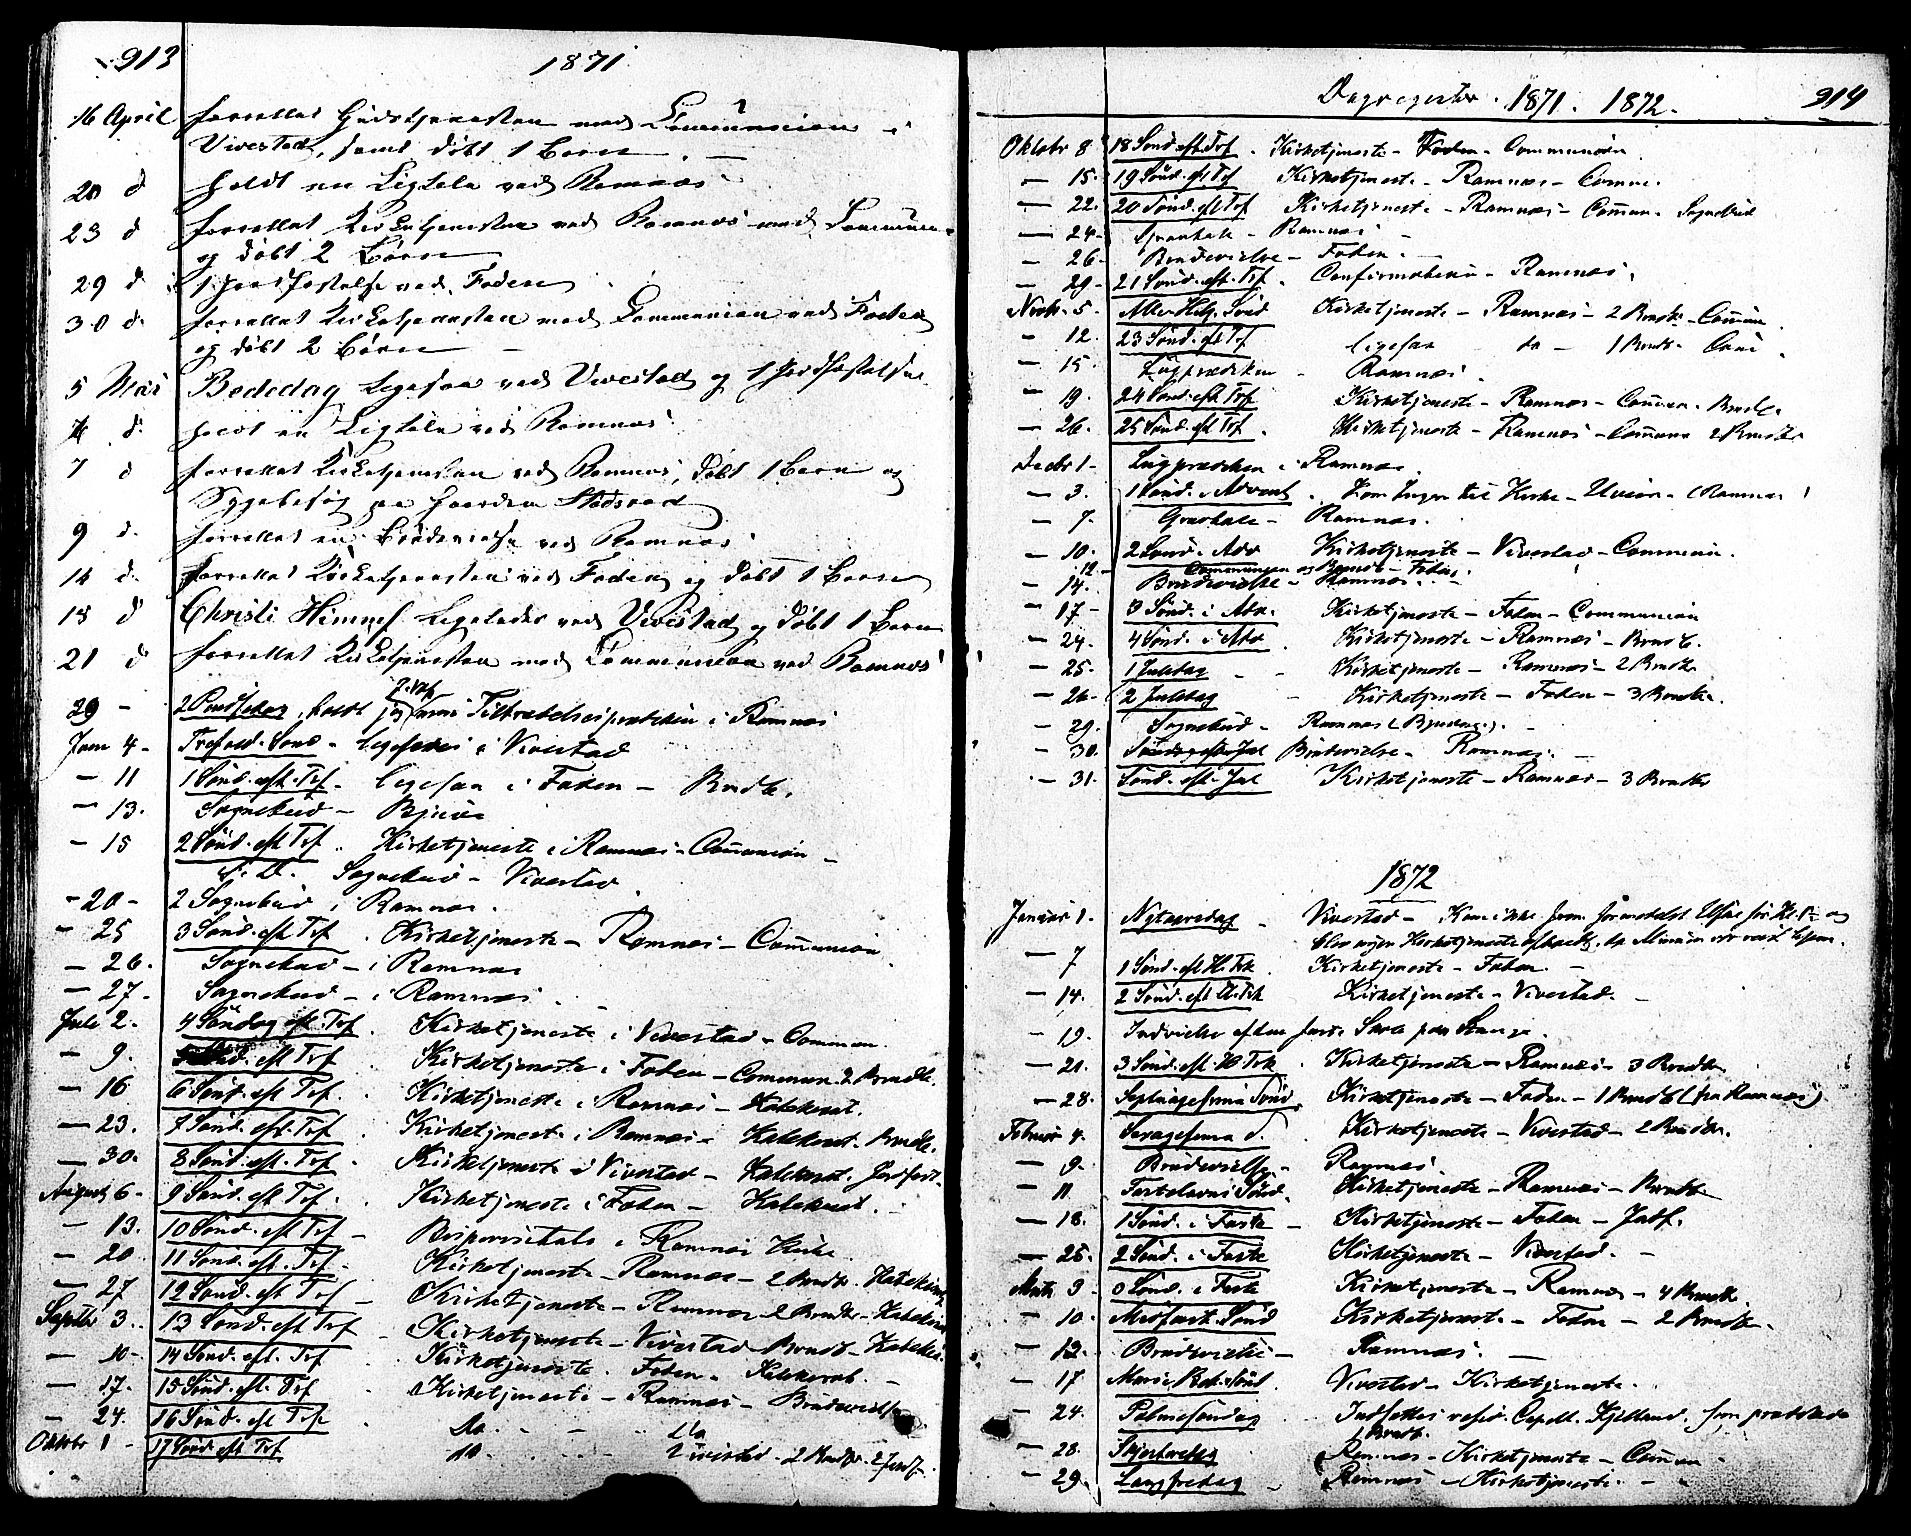 913
1871
16 April forrettet Gudstjenesten med Communion i
Vivestad, samt døbt 1 Barn. —
20 d holdt en Ligtale ved Ramnæs
23 d forrettet Kirketjenesten ved Ramnæs med Commun.
og døbt 2 Børn
29 d 1 Jordfæstelse ved Foden
30 d. forrettet Kirketjenesten med Communion ved Foden
og døbt 2 Børn —
5 Mai Bededag ligesaa ved Vivestad og 1 Jordfæstelse
d. holdt en Ligtale ved Ramnæs
7 d forrettet Kirketjenesten ved Ramnæs, døbt 1 Barn og
Sygebesøg paa
9 d. forrettet en Brudevielse ved Ramnæs
14 d. forrettet Kirketjenesten ved Foden og døbt 1 Barn
18 d Christi Himmelf ligeledes ved Vivestad og døbt 1 Barn
21 d forrettet Kirketjenesten med Communion ved Ramnæs
29 - 2 Pindsedag, holdt jeg min Tiltrædelsesprædiken i Ramnæs
Juni 4 - Trefold. Sønd - ligesaa i Vivestad
— 11 1 Sønd. eft. Tref - ligesaa i Foden — Brudv.
— 13. Sognebud —
— 18 2 Sønd. eft Tref .. Kirketjeneste i Ramnæs - Communion —
S. D. Sognebud - Vivestad.
- 20 - 2 Sognebud i Ramnæs.
- 25 3 Sønd. eft Tref . Kirketjeneste - Ramnæs - Communion
- 26. Sognebud - i Ramnæs
- 27. Sognebud - i Ramnæs.
Juli 2. 4 Søndag eft. Tref . Kirketjeneste i Vivestad - Commun.
- 9. eft Tref . Kirketjeneste i Foden - Commun. 2 Brudv.
- 16 6 Sønd. eft Tref . Kirketjeneste i Ramnæs -
- 23. 7 Sønd. eft. Tref . Kirketjeneste i Ramnæs - Brudv.
- 30. 8 Sønd. eft. Tref . Kirketjeneste i Vivestad - Jordfæst.
August 6 - 9 Sønd. eft Tref . Kirketjeneste i Foden -
- 13. 10 Sønd. eft Tref — Bispevisitats i Ramnæs Kirke
- 20 11 Sønd. eft. Tref - Kirketjeneste - Ramnæs - 2 Brudv.
- 27 12 Sønd. eft Tref — Kirketjeneste - Ramnæs 2 Brudv. -
Septbr 3. 13 Sønd. eft Tref — Kirketjeneste - Vivestad Brudv -
- 10. 14 Sønd. eft. Tref Kirketjeneste. Foden -
- 17. 15 Sønd. eft. Tref . Kirketjeneste - Ramnæs - Brudevielse
- 24. 16 Sønd. eft Tref Do. - - - Do
Oktobr 1 - 17 Sønd eft Tref Do - Vivestad - 2 Brudv. 2 Jordf.
Dagregister. 1871. 1872. 914
Oktobr 8 18 Sønd eft. Tref . Kirketjeneste - Foden - Communion
— 15. 19 Sønd. eft Tref Kirketjeneste - Ramnæs - Commu.
— 22. 20 Sønd. eft Tref Kirketjeneste - Ramnæs - Commun - Sognebud
— 24. - Ramnæs —
— 26. Brudevielse - Foden. —
— 29. 21 Sønd. eft. Tref . Confirmation - Ramnæs.
Novbr. 5. Alle Helg. Sønd Kirketjeneste - Ramnæs - 2 Brudv. - Commun.
— 12. 23 Sønd. eft Tref ligesaa do — 1 Brudv. Comm.
— 15. Ligprædiken - Ramnæs.
— 19. 24 Sønd. eft Tref Kirketjeneste - Ramnæs - Commun. Brudv.
— 26. 25 Sønd. eft Tref . Kirketjeneste - Ramnæs - Commun 2 Brudv.
Decbr 1 - Ligprædiken i Ramnæs.
— 3. 1 Sønd. i Advent . Kom Ingen til Kirke - (Ramnæs)
— 7. - Ramnæs.
— 10. 2 Sønd. i Adv Kirketjeneste - Vivestad - Communion.
12. Communion og Brudv - Foden.
— 14. Brudevielse - Ramnæs. —
— 17 - 3 Sønd. i Adv. Kirketjeneste - Foden - Communion
— 24. 4 Sønd. i Adv. Kirketjeneste - Ramnæs - Brudv.
— 25. 1 Juledag Kirketjeneste - Ramnæs - 2 Brudv.
— 26. 2 Juledag Kirketjeneste - Foden - 3 Brudv.
— 29. Sognebud - Ramnæs —
— 30. Brudevielse - Ramnæs. —
— 31. Sønd. eft. Jul Kirketjeneste - Ramnæs - 3 Brudv.
1872
Januar 1. Nytaarsdag - Vivestad - Kom ikke frem og
blev ingen Kirketjeneste
— 7 1 Sønd. eft H. Trk . Kirketjeneste - Foden —
— 14. 2 Sønd. eft H. Trk Kirketjeneste - Vivestad. —
— 19.
— 21. 3 Sønd. eft. H Trk . Kirketjeneste - Ramnæs - 3 Brudv.
— 28. Septuagesima Sønd. Kirketjeneste - Foden - 1 Brudv (fra Ramnæs)
Februar 4. Sexagesima d. Kirketjeneste - Vivestad - 2 Brudv.
— 9. Brudevielse - Ramnæs.
— 11 Fastelavns Sønd. Kirketjeneste - Ramnæs - Brudv.
— 18. 1 Sønd. i Faste - Kirketjeneste - Foden - Jordf.
— 25. 2 Sønd. i Faste Kirketjeneste - Vivestad. —
Marts 3 3 Sønd. i Faste Kirketjeneste - Ramnæs - 4 Brudv.
— 10. Midfaste. Sønd Kirketjeneste - Foden - 2 Brudv.
— 12. Brudevielse - Ramnæs. —
— 17 Mariæ Beb. Sønd. Vivestad - Kirketjeneste.
— 24. Palmesøndag Indsattes resid. Capell. Kjelland.
1 Brudv.
— 28. Skjærtorsdag Ramnæs - Kirketjeneste - Commun -
— 29. Langfredag Ramnæs - Kirketjeneste. - -